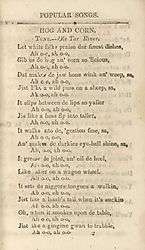 POPULAR SONGS.
HOG AND CORN.
TUNE.—Ole Tar River.
Let white folks praise dar finest dishes,
Ah o-o, ah o-o.
Gib us de hog an' corn so 'licious,
Ah o-o, ah o-o.
Dat makes de jaw bone wink an' weep, sa,
Ah o-o, ah o-o.
Jist l'ks a wild puss on a sheep, sa,
Ah o-o, ah o-o.
It slips between de lips so yaller
Ah o-o, ah o-o.
Jis like a hoss fly into taller,
Ah o-o, ah o-o.
It walks into de 'gestion fine, sa,
Ah o-o, ah o-o.
An' makes de darkies eye-ball shine, sa,
Ah o-o, ah o-o.
It grease de joint, an' oil de heel,
Ah o-o, ah o-o.
Like after on a wagon wheel.
Ah o-o, ah o-o.
It sets de niggers tongues a walkin,
Ah o-o, ah o-o.
Jist like a lamb's tail when it's suckin
Ah o-o, ah o-o.
Oh, when it smokes upon de table,
Ah o-o, ah o-o.
Jist like a gingine gwan to trabble,
Ah o-o, ah o-o.